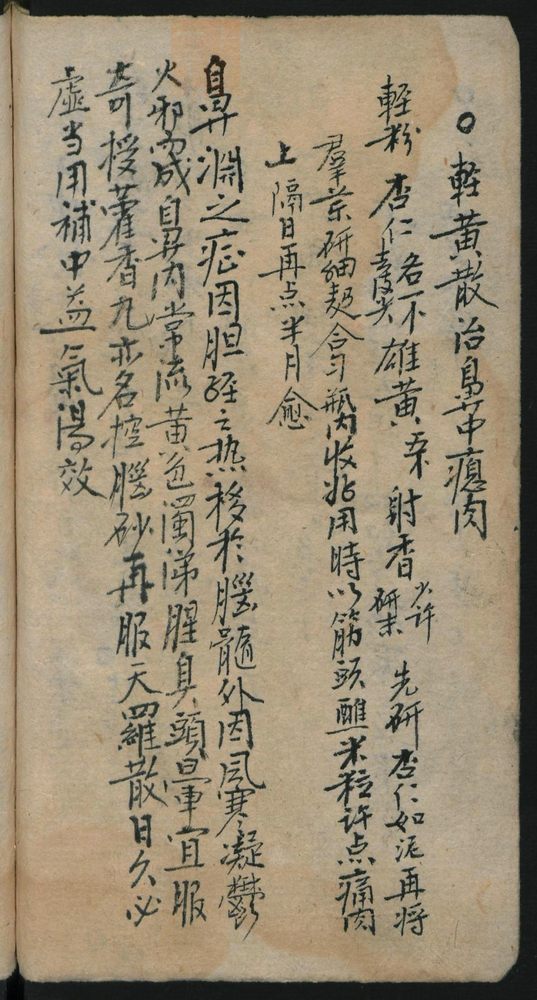 ○輕黃散治鼻中瘜肉
輕粉 杏仁各不去皮尖 雄黃五 射香少許研末 先研杏仁如泥再将
羣茶研細匀合瓶内收貯用時以筋頭醮米粒許点痛肉
上隔日再点半月愈
鼻淵之症因胆経之热移於腦髓外因風寒凝鬱
火邪而成鼻内常流黃色濁涕腥臭頭暈宜服
奇授藿香丸亦名控腦砂再服天羅散日久必
虛当用補中益氣湯效